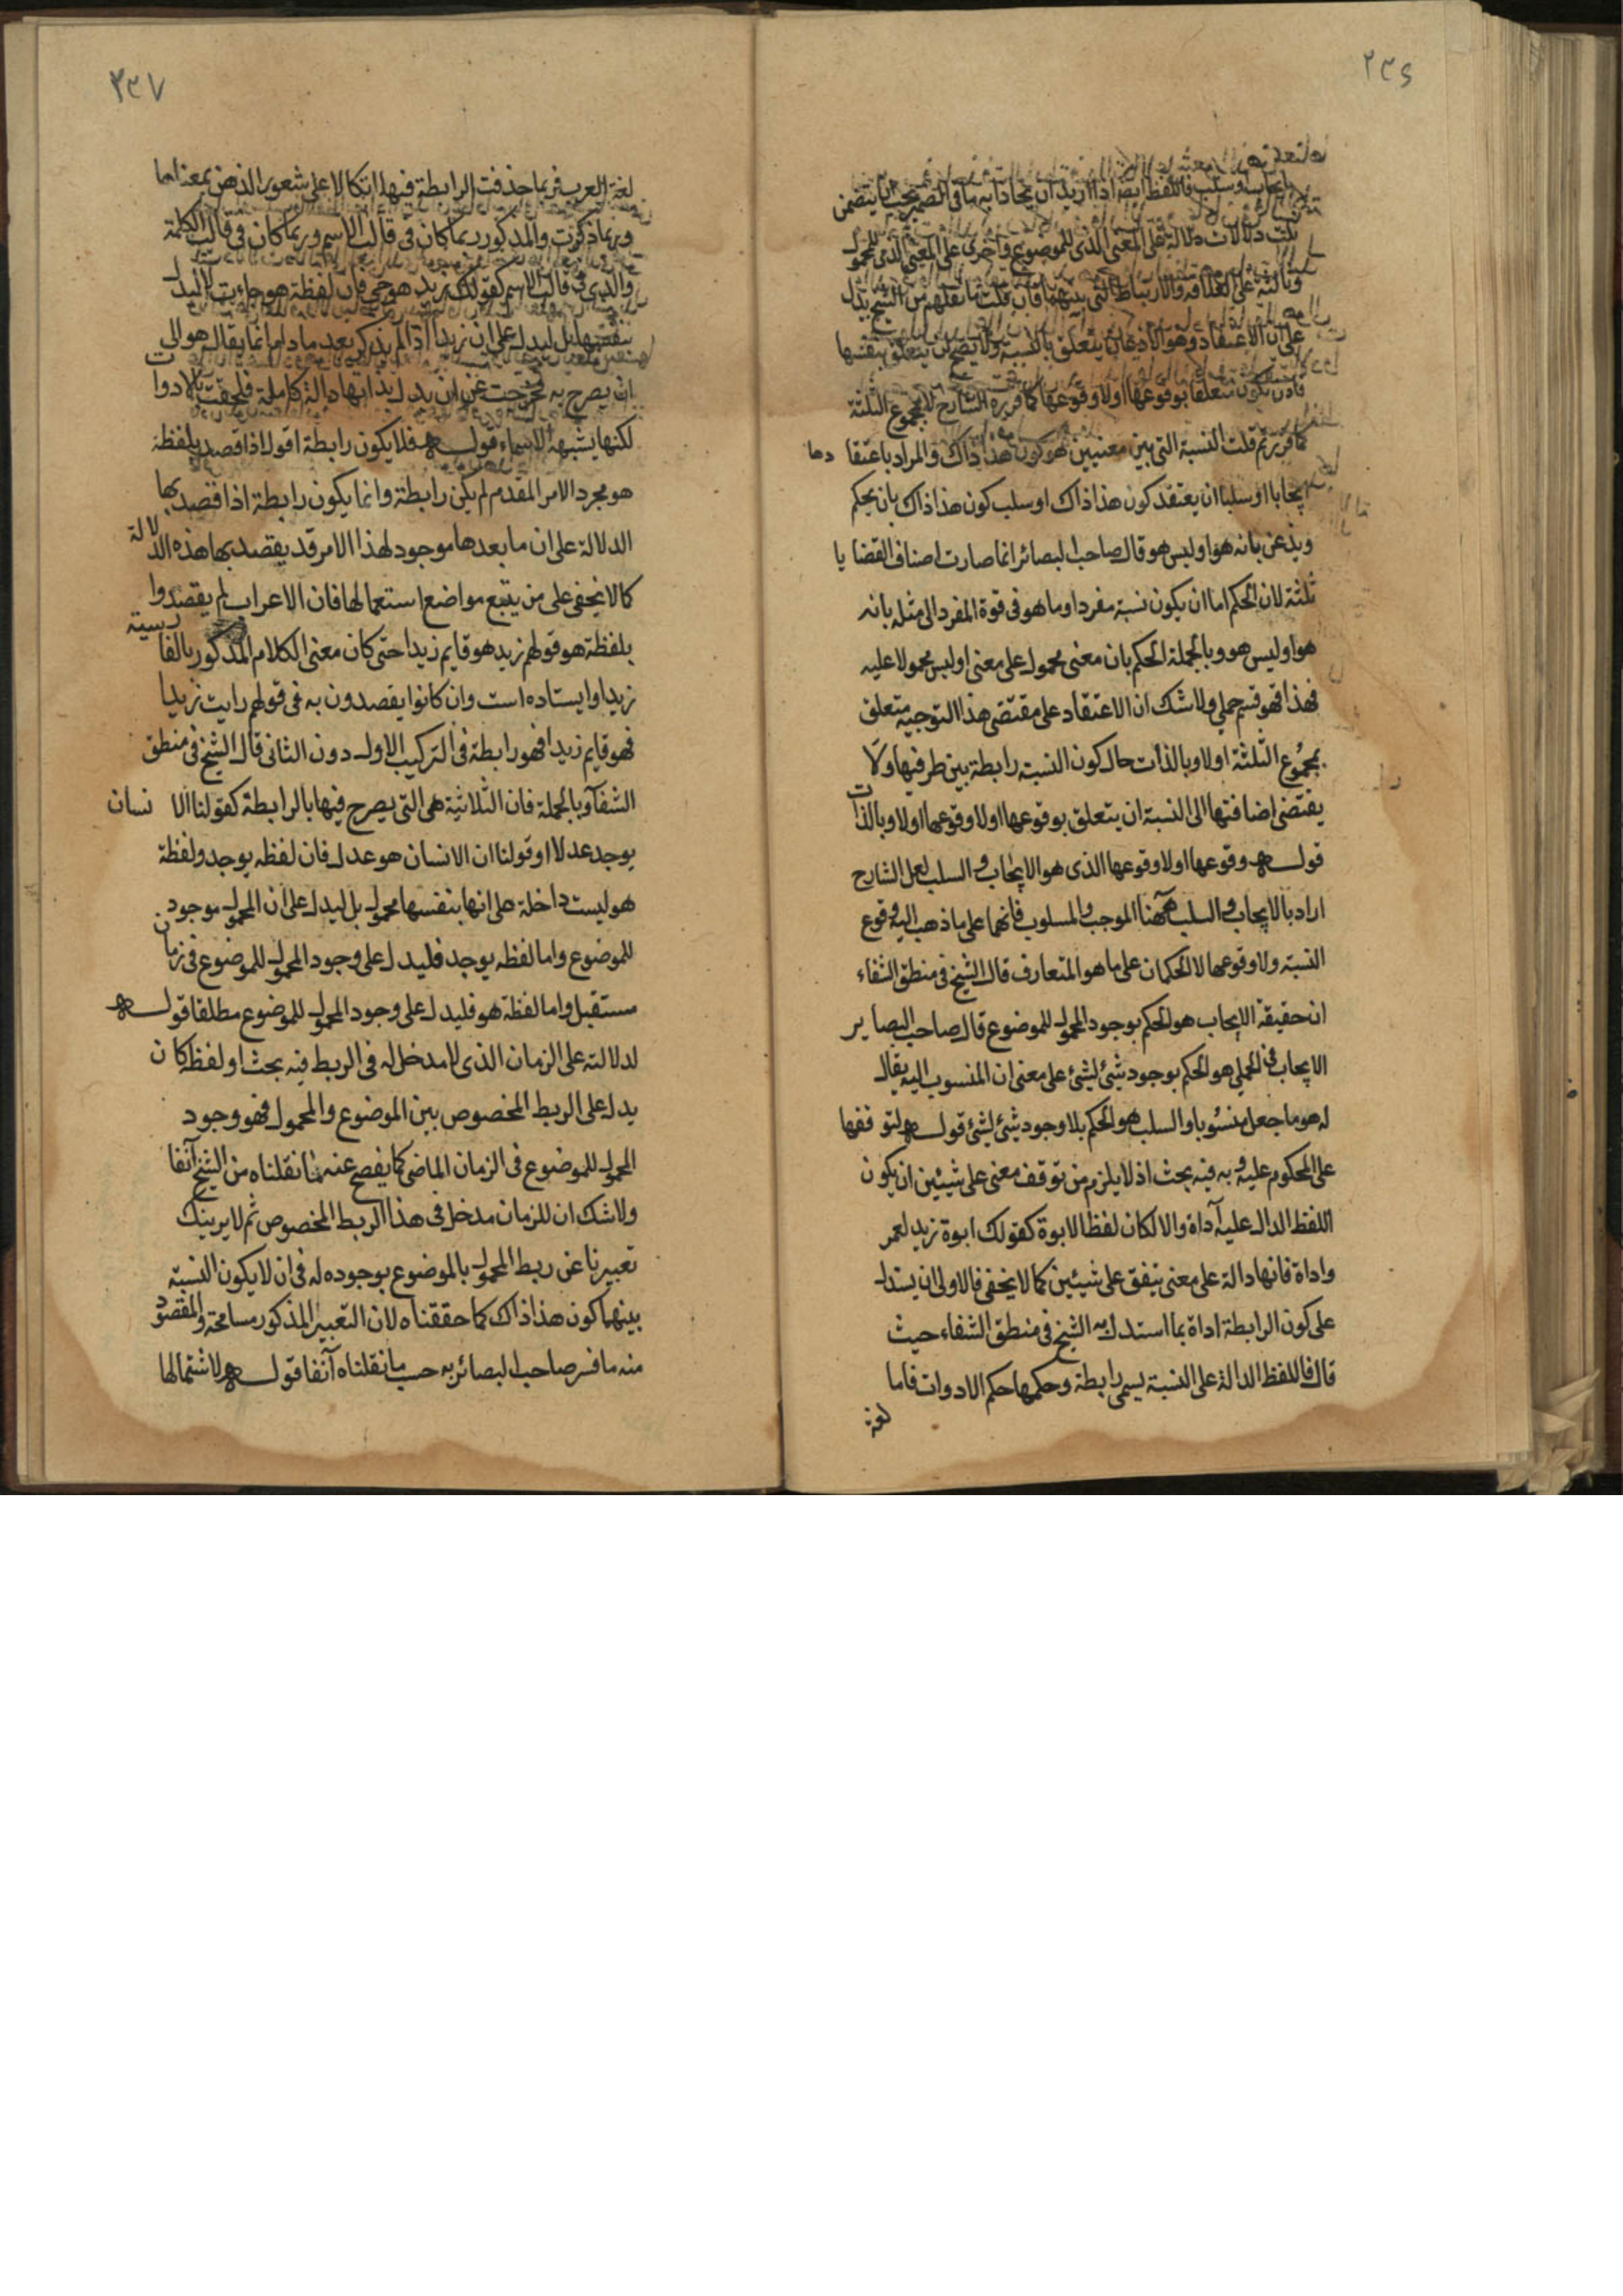 ٢٣٦
بايجاب او سلب فاللفظ ايضا اذا اريد ان يحاذا به ما في الضمير يجب ان يتضمن
ثلث دلالات دلالة على المعنى الذى للموضوع واخرى على المعنى الذى للمحمول
وثالثة على العلاقة والارتباط التى بينهما فان قلت ما نقلتم من الشيخ يدل
على ان الاعتقاد وهو الاذعان يتعلق بالنسبة ولا يتعلق بنفسها
فاذن يكون متعلقا بوقوعها اولا وقوعها كما قرره الشارح لا بمجموع الثلثة
كما قررتم قلت النسبة التى بين معنيين هو كون هذا ذاك والمراد باعتقا دها
ايجابا او سلبا ان يعتقد كون هذا ذاك او سلب كون هذا ذاك بان يحكم
ويذعن بانه هو او ليس هو قال صاحب البصائر انما صارت اصناف القضايا
ثلثة لان الحكم اما ان يكون نسبة مفرد او ما هو فى قوة المفرد الى مثله بانه
هو او ليس هو وبالجملة الحكم بان معنى محمول على معنى او ليس محمولا عليه
فهذا فهو قسم حملى ولا شك ان الاعتقاد على مقتضى هذا التوجيه متعلق
بمجموع الثلثة اولا وبالذات حال كون النسبة رابطة بين طرفيها ولا
يقتضى اضافتها الى النسبة ان يتعلق بوقوعها اولا وقوعها اولا وبالذات
قوله وقوعها اولا وقوعها الذى هو الايجاب والسلب لعل الشارح
اراد بالايجاب والسلب ههنا الموجب والمسلوب فانهما على ما ذهب اليه وقوع
النسبة ولا وقوعها لا الحكمان على ما هو المتعارف قال الشيخ فى منطق الشفاء
ان حقيقة الايجاب هو الحكم بوجود المحمول للموضوع قال صاحب البصاير
الايجاب فى الحملى هو الحكم بوجود شئ لشئ على معنى ان المنسوب اليه يقال
له هو ما جعل منسوبا والسلب هو الحكم بلا وجود شئ لشئ قوله لتوقفها
على المحكوم عليه وبه فيه بحث اذ لا يلزم من توقف معنى على شيئين ان يكون
اللفظ الدال عليه آداة والا لكان لفظ الابوة كقولك ابوة زيد لعمر
واداة فانها دالة على معنى يتفق على شيئين كما لا يخفى فالاولى ان يستدل
على كون الرابطة اداة بما استدل به الشيخ فى منطق الشفاء حيث
قال فاللفظ الدالة على النسبة يسمى رابطة وحكمها حكم الادوات فاما
لغة
٢٣٧
لغة العرب فربما حذفت الرابطة فيها اتكالا على شعور الذهن بمعناها
وربما ذكرت والمذكور ربما كان فى قالب الاسم وربما كان فى قالب الكلمة
والذى فى قالب الاسم كقولك زيد هو حى فان لفظة هو جاءت لا ليدل
بنفسها بل ليدل على ان زيدا لم يذكر بعد ما دام انما يقال هو الى
ان يصرح به خرجت عن ان يدل بذاتها دالة كاملة فلحقت بالادوات
لكنها يشبه الاسماء قوله فلا يكون رابطة اقول اذا قصد بلفظة
هو مجرد الامر المقدم لم يكن رابطة وانما يكون رابطة اذا قصد بها
الدلالة على ان ما بعدها موجود لهذا الامر قد يقصد بها هذه الدلالة
كما لا يخفى على من يتتبع مواضع استعمالها فان الاعراب لم يقصدوا
بلفظة هو قولهم زيد هو قايم زيدا حتى كان معنى الكلام المذكور بالفارسية
زيد او ايستاده است وان كانوا يقصدون به فى قولهم رايت زيدا
فهو قايم زيدا فهو رابطة فى التركيب الاول دون الثانى قال الشيخ فى منطق
الشفآ وبالجملة فان الثلاثية هى التى يصرح فيها بالرابطة كقولنا الا نسان
يوجد عدلا او قولنا ان الانسان هو عدل فان لفظه يوجد ولفظة
هو ليست داخلة على انها بنفسها محمول بل ليدل على ان المحمول موجود
للموضوع واما لفظه يوجد فليدل على وجود المحمول للموضوع فى زمان
مستقبل واما لفظة هو فليدل على وجود المحمول للموضوع مطلقا قوله
لدلالته على الزمان الذى لا مدخل له فى الربط فيه بحث او لفظ كان
يدل على الربط المخصوص بين الموضوع والمحمول فهو وجود
المحمول للموضوع فى الزمان الماضى كما يفصح عنه ما نقلناه من الشيخ آنفا
ولا شك ان للزمان مدخل فى هذا الربط المخصوص ثم لا يريبنك
تعبيرنا عن ربط المحمول بالموضوع بوجوده له فى ان لا يكون النسبة
بينهما كون هذا ذاك كما حققناه لان التعبير المذكور مسامحة والمقصود
منه ما فسر صاحب البصائر به حسب ما نقلناه آنفا قوله لاشتمالها